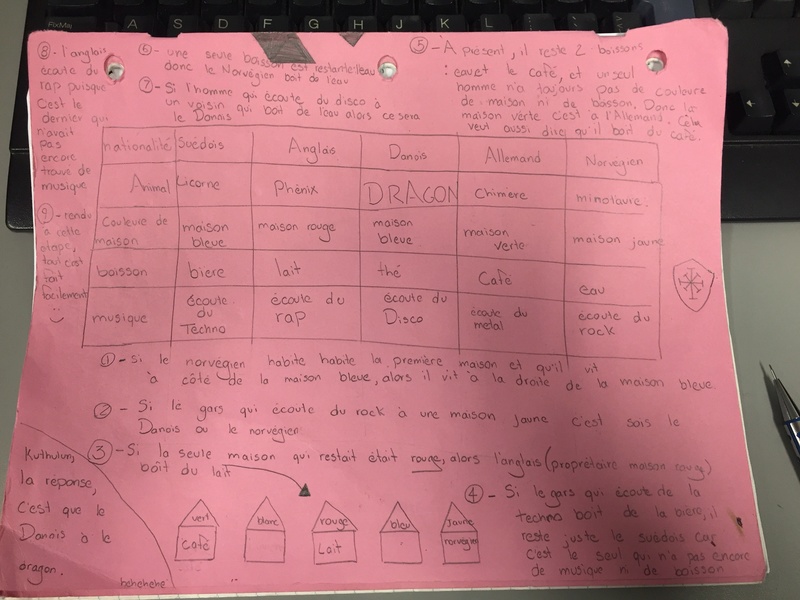 ⑧- l'anglais
écoute du
rap puisque
c'est le
dernier qui
n'avait
pas
encore
trouvé de
musique
⑨- rendu
à cette
étape,
tout est
fait
facilement
:)
⑥- une seule boisson est restante: l'eau
donc le Norvégien boit de l'eau
⑦- Si l'homme qui écoute du disco à
un voisin qui boit de l'eau alors ce sera
le Danois
⑤- À présent, il reste 2 boissons
: eau et le café, et un seul
homme n'a toujours pas de couleure
de maison ni de boisson. Donc la
maison verte c'est à l'Allemand. Cela
veut aussi dire qu'il boit du café.
nationalité Suédois Anglais Danois Allemand Norvégien
Animal Licorne Phénix DRAGON Chimère minotaure.
Couleure de maison maison bleue maison rouge maison bleue maison verte maison jaune
boisson bière lait thé Café eau
musique écoute du Techno écoute du rap écoute du Disco écoute du métal écoute du rock
①- Si le norvégien habite habite la première maison et qu'il vit
à côté de la maison bleue, alors il vit à la droite de la maison bleue
② - Si le gars qui écoute du rock à une maison jaune c'est sois le
Danois ou le norvégien
③-Si la seule maison qui restait était rouge, alors l'anglais (propriétaire maison rouge)
boit du lait
Kuthulun,
la réponse,
C'est que le
Danois à le
dragon.
hehehehe
vert blanc rouge bleu Jaune
Café Lait norvégien
④ - Si le gars qui écoute de la
techno boit de la bière, il
reste juste le suédois car
C'est le seul qui n'a pas encore
de musique ni de boisson